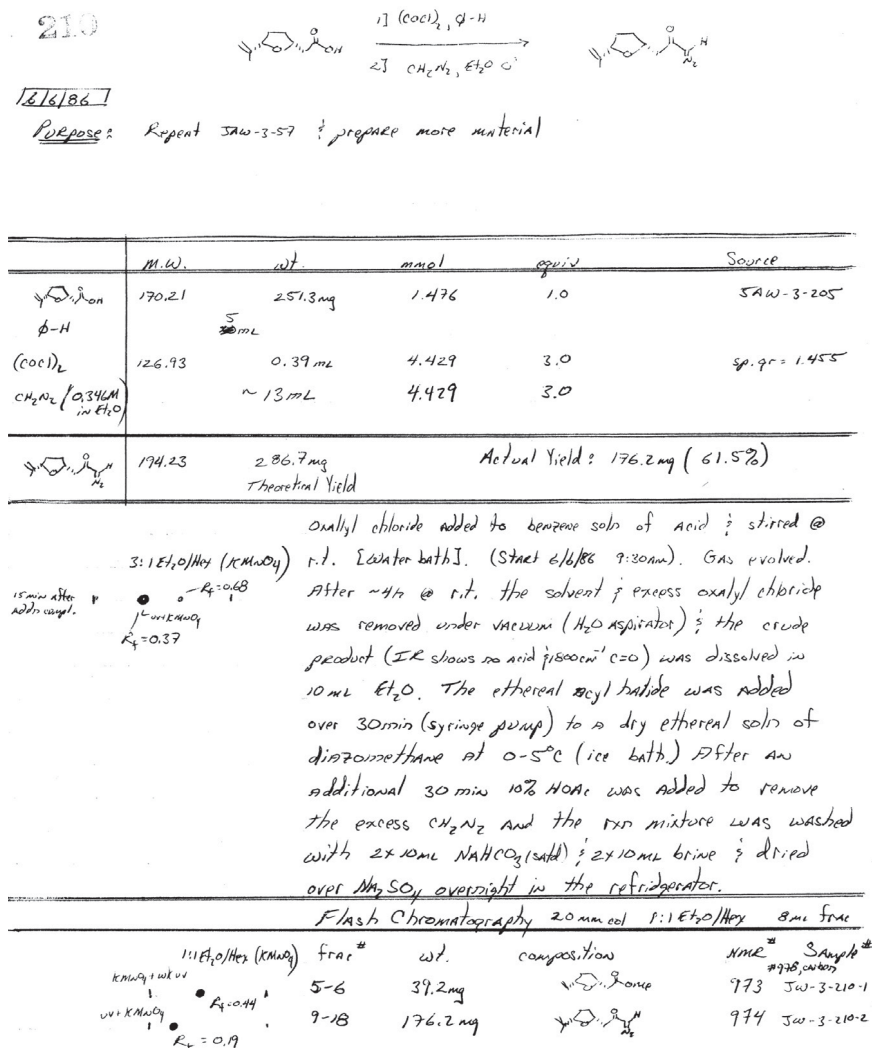 210
1] (COCl)2, φ-H
2] CH2N2, Et2O 0°
6/6/86
Purpose: Repeat JAW-3-57 & prepare more material
M.W. wt. mmol equiv Source
170.21 251.3mg 1.476 1.0 JAW-3-205
φ-H 5 mL
(COCl)2 126.93 0.39 mL 4.429 3.0 sp.gr = 1.455
CH2N2 (0.346M in Et2O) ~13mL 4.429 3.0
194.23 286.7mg Actual Yield: 176.2mg (61.5%)
Theoretical Yield
Oxallyl chloride added to benzene soln of acid & stirred @
r.t. [Water bath]. (Start 6/6/86 9:30AM). Gas evolved.
After ~4h @ r.t. the solvent & excess oxalyl chloride
was removed under vacuum (H2O aspirator) & the crude
product (IR shows no acid & 1800cm-1 C=O) was dissolved in
10mL Et2O. The ethereal acyl halide was added
over 30min (syringe pump) to a dry ethereal soln of
diazomethane at 0-5°C (ice bath.) After an
additional 30 min 10% HOAc was added to remove
the excess CH2N2 and the rxn mixture was washed
with 2x10mL NaHCO3 (satd) & 2x10mL brine & dried
over Na2SO4 overnight in the refridgerator.
3:1 Et2O/Hex (KMnO4)
15 min after addn compl.
Rf=0.68
uv+KMnO4
Rf=0.37
Flash Chromatography 20mm col 1:1 Et2O/Hex 8mL frac
1:1 Et2O/Hex (KMnO4) frac# wt. composition NMR# Sample#
#978, carbon
KMnO4+wk uv
Rf=0.44
5-6 39.2mg OMe 973 JW-3-210-1
uv+KMnO4
Rf=0.19
9-18 176.2mg 974 JW-3-210-2